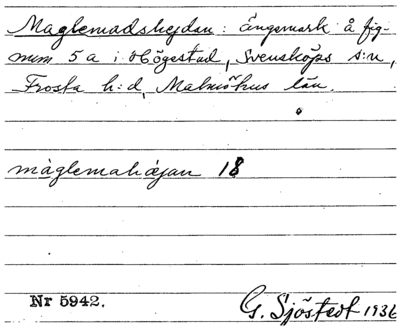 Maglemadshejdan: ängsmark å fig-
num 5a i Högestad, Svensköps s:n,
Frosta h:d, Malmöhus län.
màglemahæjan 18
Nr 5942.
G. Sjöstedt 1936